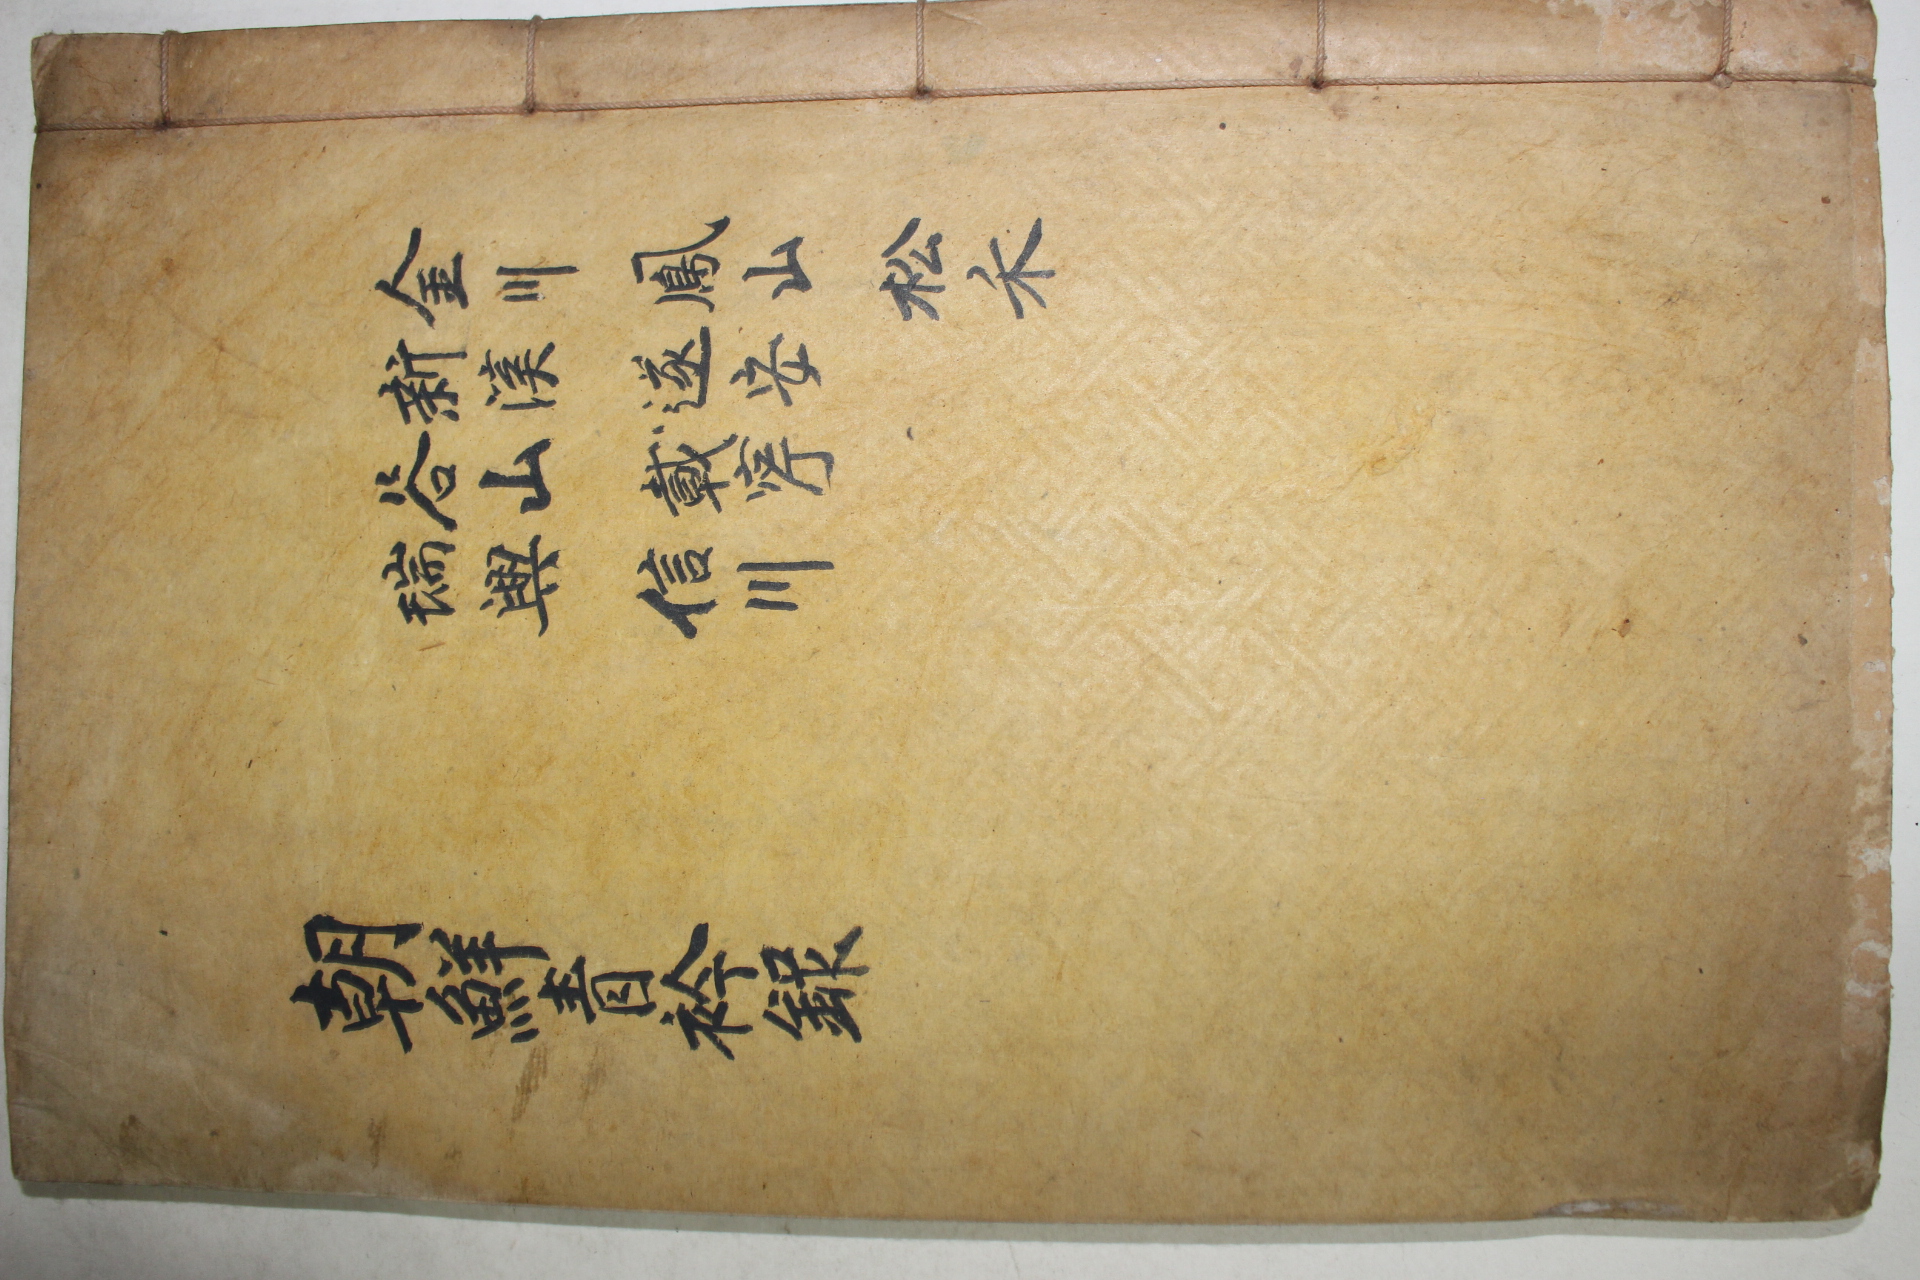 金川 鳳山 松禾
新溪 遂安
谷山 載寧
瑞興 信川
朝鮮青衿錄